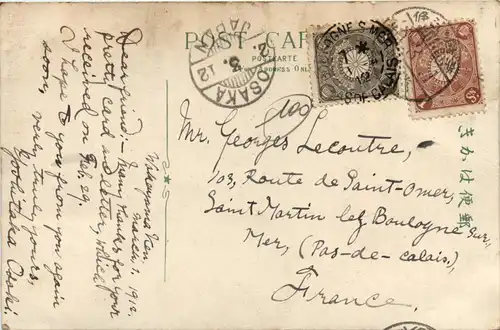 POST CARD
POSTCARTE
Address Only
OSAKA
12
3
JAPAN
BOULOGNE S. MER
PAS DE CALAIS
Wakayama Ken
March 1, 1912.
Dear friend:- Many thanks for your
pretty card and letter, which
received on Feb. 29.
I hope to you from you again
soon,
very truly yours,
Yoshitaka Ozaki.
100
Mr. Georges Lecoutre,
103, Route de Saint-Omer,
Saint Martin lez Boulogne sur
Mer, (Pas-de-calais.)
France.
きかは便郵